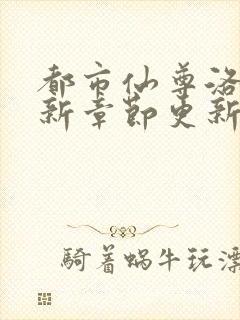 都市仙尊洛
新章節更新
騎着蝸牛玩漂